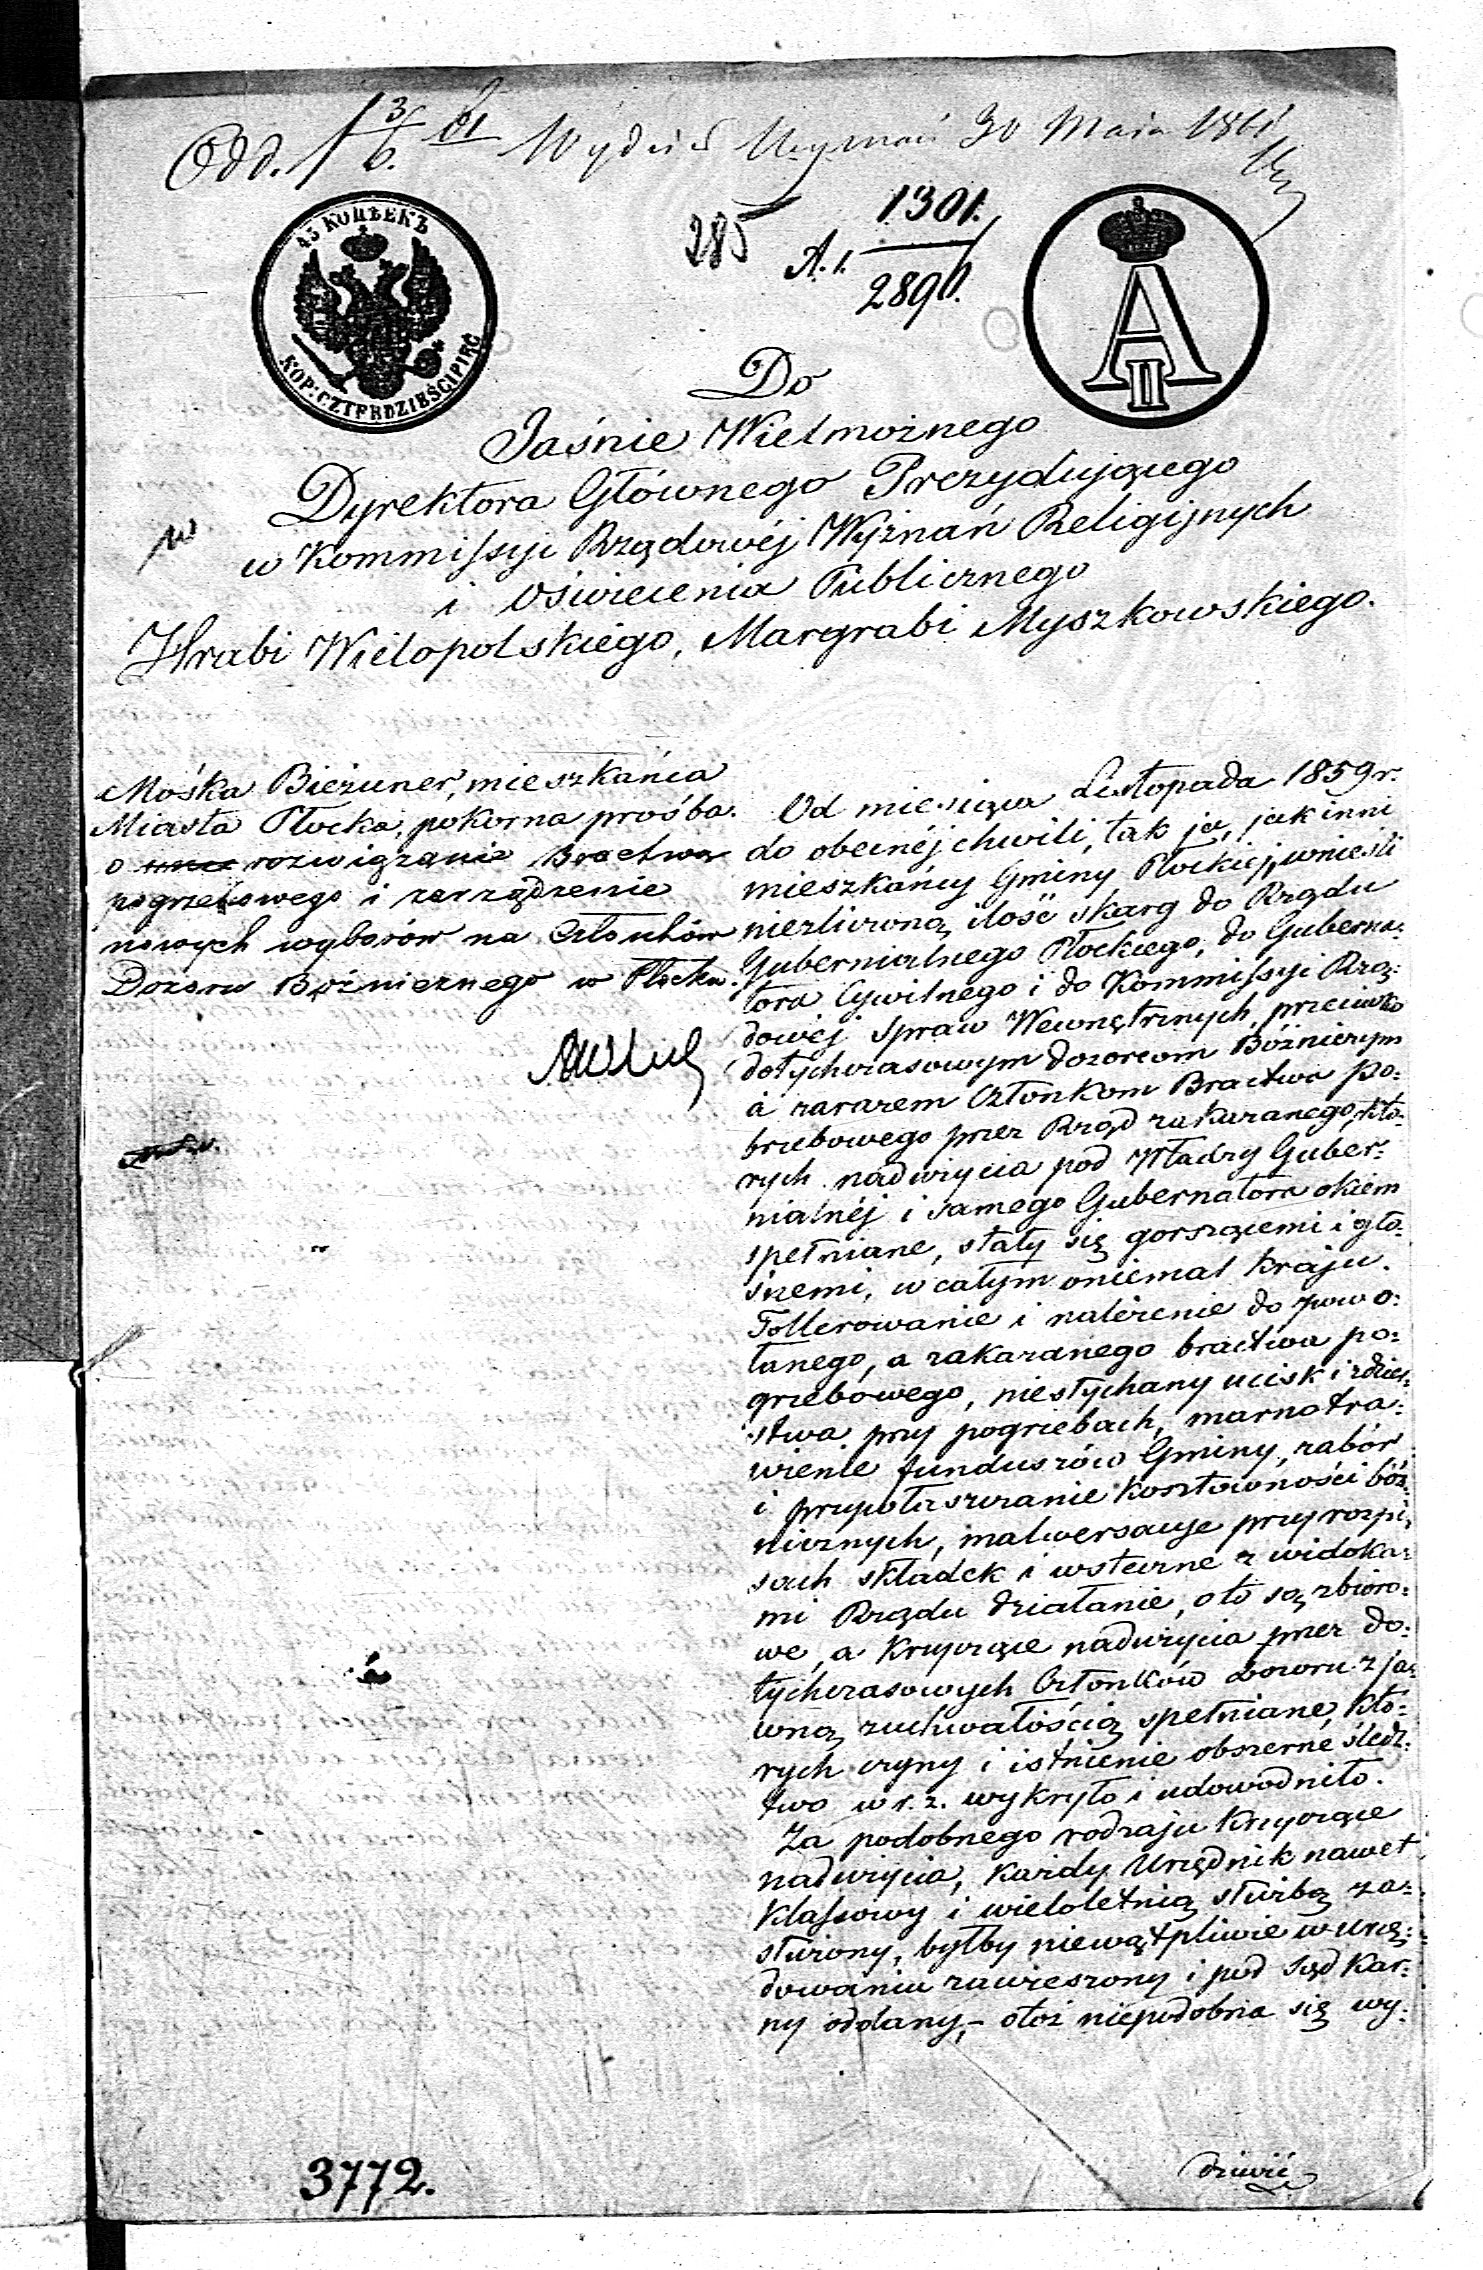 Odd. 1 3/6. 61 Wydział Wyznań 30 Maia 1861
45 КОПѢЕКЪ
KOP: CZTERDZIEŚCI PIĘĆ
285
A. 1. 1301.
2890.
A II
Do
Jaśnie Wielmożnego
Dyrektora Głównego Prezydującego
w Kommissyi Rządowéj Wyznań Religijnych
i Oświecenia Publicznego
Hrabi Wielopolskiego, Margrabi Myszkowskiego.
Mośka Bieżuner, mieszkańca
Miasta Płocka, pokorna prośba.
o rozwiązanie Bractwa
pogrzebowego i zarządzenie
nowych wyborów na Członków
Dozoru Bóżnicznego w Płocku.
Od miesiąca Listopada 1859 r.
do obecnéj chwili, tak ja, jak inni
mieszkańcy Gminy Płockiej, wnieśli
niezliczoną ilość skarg do Rządu
Gubernialnego Płockiego, do Guberna-
tora Cywilnego i do Kommissyi Rzą-
dowéj Spraw Wewnętrznych, przeciwko
dotychczasowym dozorcom Bóżniczym
a zarazem Członkom Bractwa po-
grzebowego przez Rząd zakazanego, któ-
rych nadużycia pod Władzy Guber-
nialnéj i samego Gubernatora okiem
spełniane, stały się gorszącemi i gło-
śnemi, w całym oniemal Kraju.
Tollerowanie i należenie do zwo-
łanego, a zakazanego bractwa po-
grzebowego, niesłychany ucisk i zdzier-
stwa przy pogrzebach, marnotra-
wienie funduszów Gminy, zabór
i przywłaszczanie kosztowności bóż-
nicznych, malwersacye przy rozpi-
sach składek i wsteczne z widoka-
mi Rządu działanie, oto są zbioro-
we, a krzyczące nadużycia przez do-
tychczasowych Członków Dozoru z ja-
wną zuchwałością spełniane, któ-
rych czyny i istnienie obszerne śledz-
two w r. z. wykryło i udowodniło.
Za podobnego rodzaju krzyczące
nadużycia, każdy Urzędnik nawet
klassowy i wieloletnią służbą za-
służony, byłby niewątpliwie w urzę-
dowaniu zawieszony i pod Sąd Kar-
ny oddany,- otóż niepodobna się wy-
dziwić
3772.